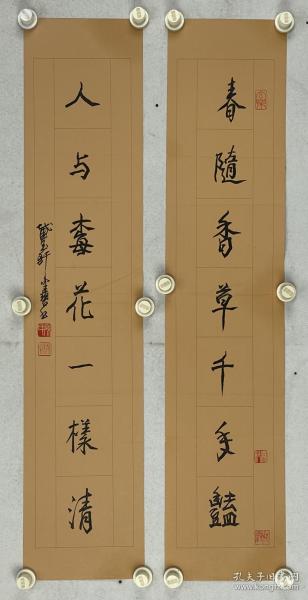 春隨香草千年豔
人与梅花一樣清
孔夫子旧书网